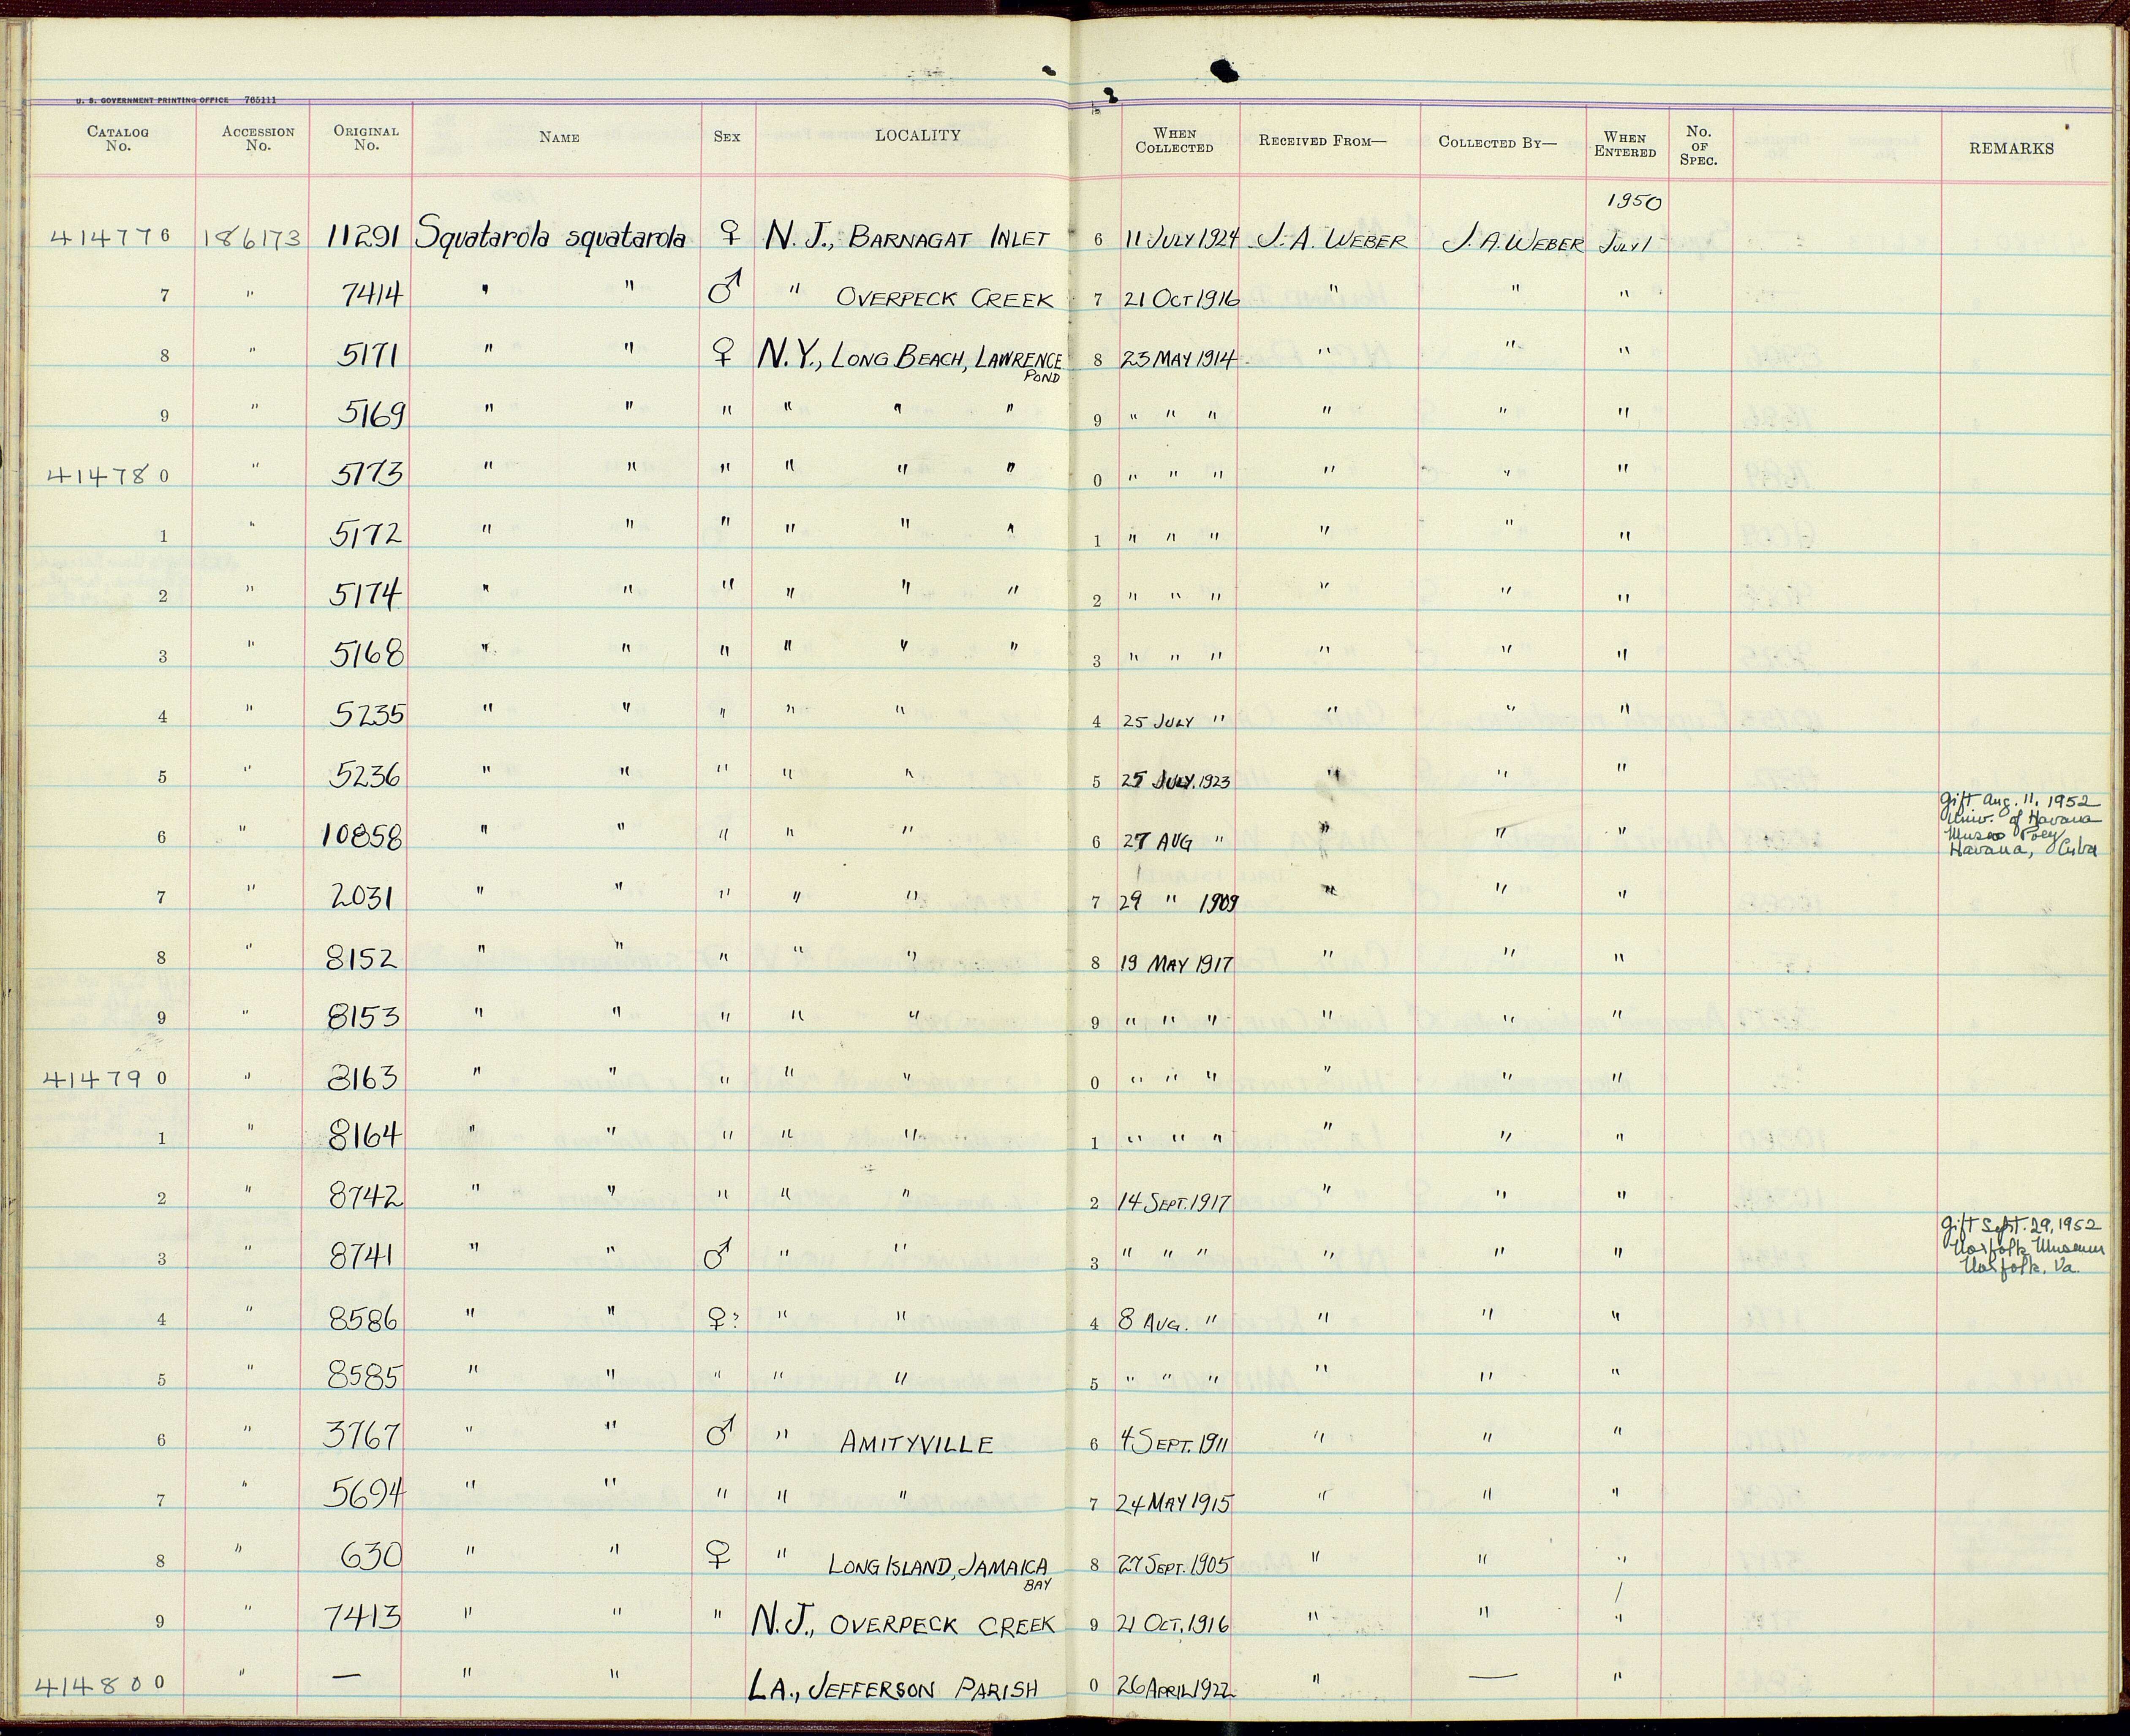 U. S. GOVERNMENT PRINTING OFFICE 765111
CATALOG No. ACCESSION No. ORIGINAL No. NAME SEX LOCALITY WHEN COLLECTED RECEIVED FROM— COLLECTED BY— WHEN ENTERED No. OF SPEC. REMARKS
1950
414776 186173 11291 Squatarola squatarola ♀ N. J., BARNAGAT INLET 6 11 JULY 1924 J. A. WEBER J. A. WEBER JULY 1
7 " 7414 " " ♂ " OVERPECK CREEK 7 21 OCT 1916 " " "
8 " 5171 " " ♀ N.Y., LONG BEACH, LAWRENCE POND 8 23 MAY 1914 " " "
9 " 5169 " " " " " " 9 " " " " " "
414780 " 5173 " " " " " " 0 " " " " " "
1 " 5172 " " " " " " 1 " " " " " "
2 " 5174 " " " " " " 2 " " " " " "
3 " 5168 " " " " " " 3 " " " " " "
4 " 5235 " " " " " 4 25 JULY " " " "
5 " 5236 " " " " " 5 25 JULY. 1923 " " "
6 " 10858 " " " " " 6 27 AUG " " " " Gift Aug. 11, 1952
Univ. of Havana
Museo Poey
Havana, Cuba
7 " 2031 " " " " " 7 29 " 1909 " " "
8 " 8152 " " " " " 8 19 MAY 1917 " " "
9 " 8153 " " " " " 9 " " " " " "
414790 " 8163 " " " " " 0 " " " " " "
1 " 8164 " " " " " 1 " " " " " "
2 " 8742 " " " " " 2 14 SEPT. 1917 " " "
3 " 8741 " " ♂ " " 3 " " " " " " Gift Sept. 29, 1952
Norfolk Museum
Norfolk, Va.
4 " 8586 " " ♀? " " 4 8 AUG. " " " "
5 " 8585 " " " " " 5 " " " " " "
6 " 3767 " " ♂ " AMITYVILLE 6 4 SEPT. 1911 " " "
7 " 5694 " " " " " 7 24 MAY 1915 " " "
8 " 630 " " ♀ " LONG ISLAND, JAMAICA BAY 8 27 SEPT. 1905 " " "
9 " 7413 " " " N.J., OVERPECK CREEK 9 21 OCT. 1916 " " "
414800 " — " " LA., JEFFERSON PARISH 0 26 APRIL 1922 " — "